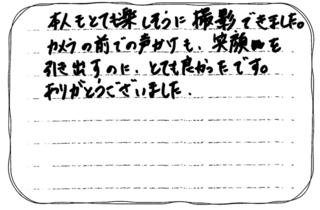 本人もとても楽しそうに撮影できました。
カメラの前での声かけも、笑顔を
引き出すのに、とても良かったです。
ありがとうございました.